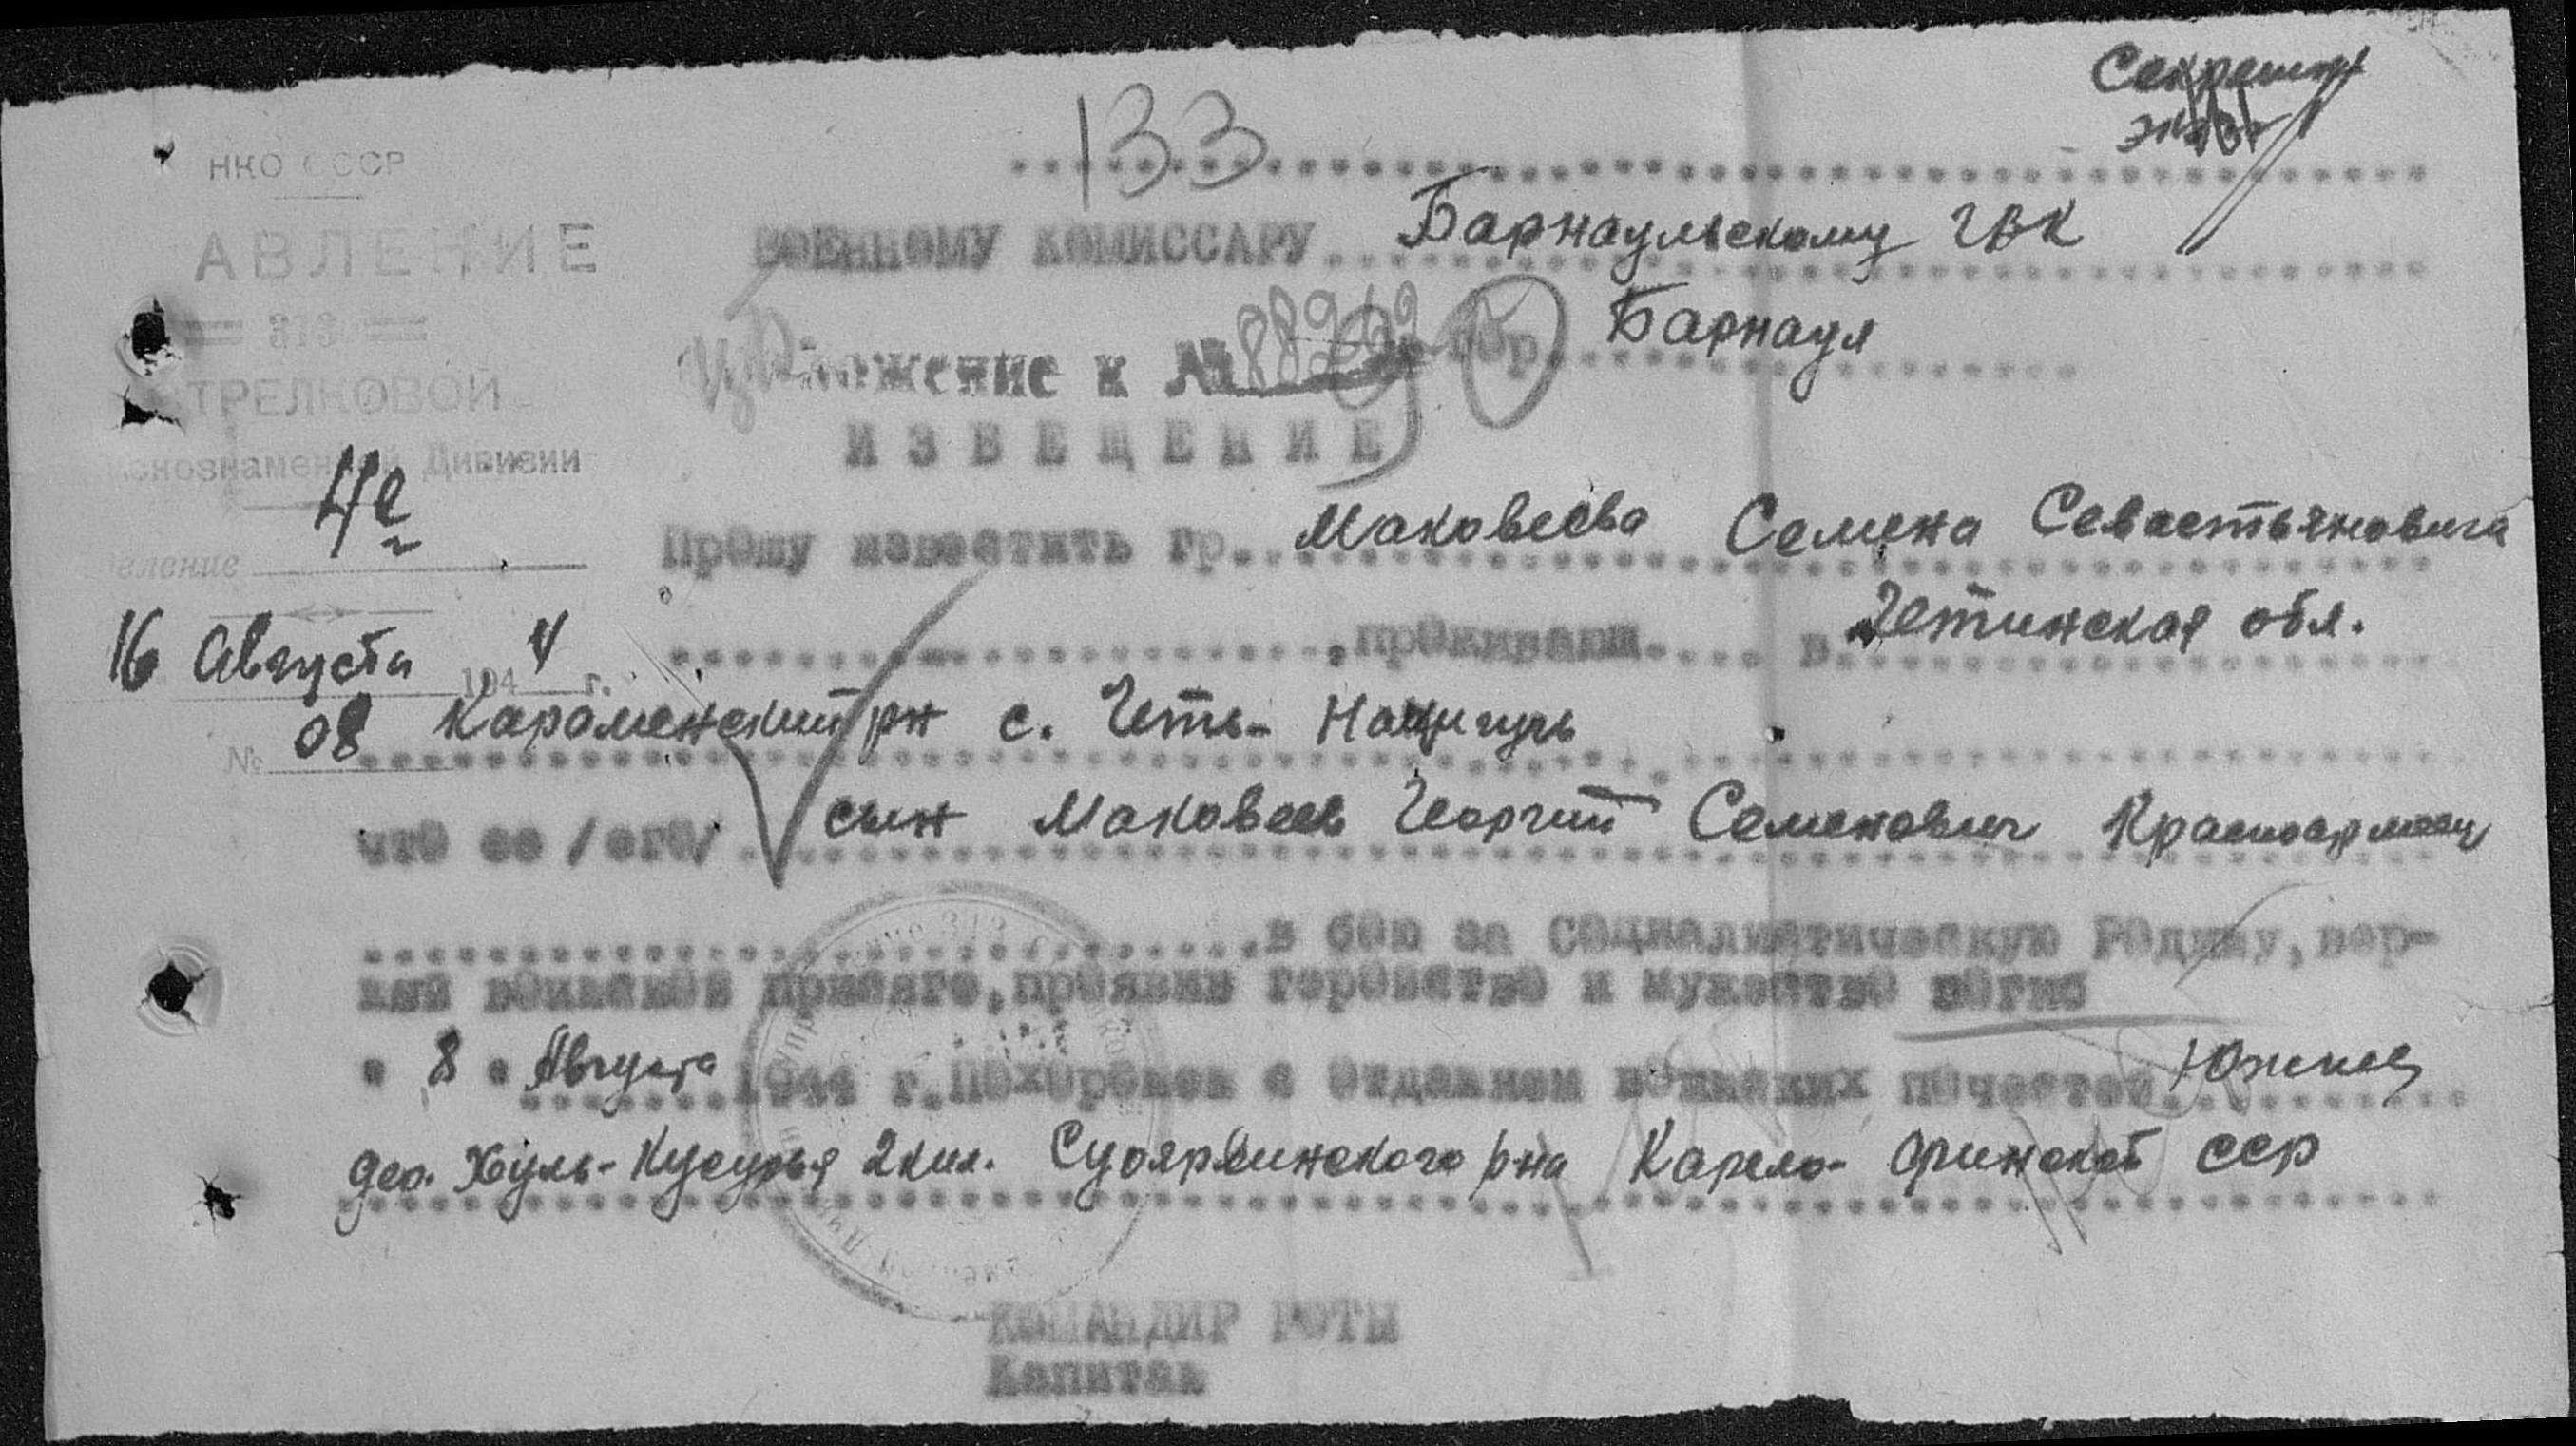 Секретн
экз
133
НКО СССР
АВЛЕНИЕ
313
ТРЕЛКОВОЙ
нознаменной Дивизии
4е
вление
16 Августа 1944 г.
№ 08
ВОЕННОМУ КОМИССАРУ Барнаульскому ГВК
гор. Барнаул
ложение к №
ИЗВЕЩЕНИЕ
Прошу известить гр. Маковеева Семена Севастьяновича
, проживающ. в Читинская обл.
Карыменский рн с. Четь-
что ее /его/ сын Маковеев Георгий Семенович Красноармеец
в бою за Социалистическую Родину, вер-
ный воинской присяге, проявив геройство и мужество погиб
" 8 " Августа 1944 г. Похоронен с отданием воинских почестей Южнее
дер. Хуль-Кусурья 2 кил. Суоярвинского р-на Карело-Финской ССР
КОМАНДИР РОТЫ
Капитан